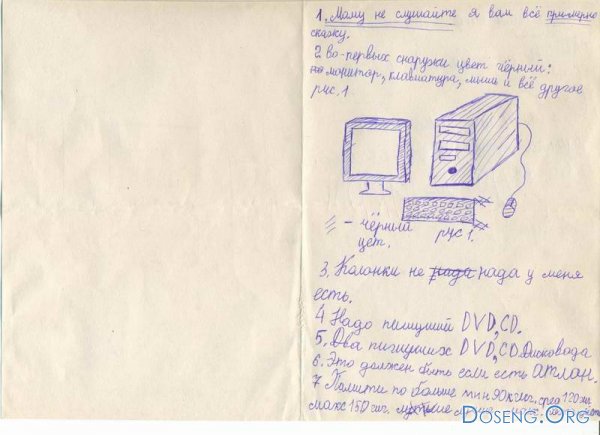 1. Маму не слушайте я вам всё примерно
скажу.
2. во-первых снаружи цвет чёрный:
монитор, клавиатура, мышь и всё другое
рис. 1
- чёрный
цвт.
рус 1.
3. Колонки не нада нада у меня
есть.
4 Надо пишущий DVD, CD.
5. Два пишущих DVD, CD Дисковода
6. Это должен быть если есть атлан.
7 Памяти по больше мин 90кгиг. сред 120гиг
макс 150гиг.
Doseng.Org